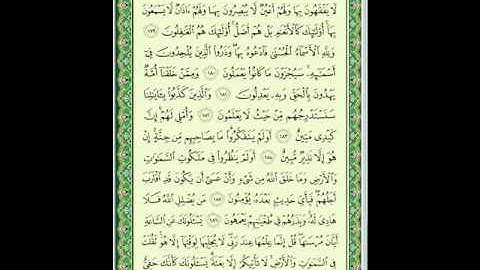 لَا يَفْقَهُونَ بِهَا وَلَهُمْ أَعْيُنٌ لَّا يُبْصِرُونَ بِهَا وَلَهُمْ ءَاذَانٌ لَّا يَسْمَعُونَ
بِهَا أُوْلَٰٓئِكَ كَٱلْأَنْعَٰمِ بَلْ هُمْ أَضَلُّ أُوْلَٰٓئِكَ هُمُ ٱلْغَٰفِلُونَ ١٧٩
وَلِلَّهِ ٱلْأَسْمَآءُ ٱلْحُسْنَىٰ فَٱدْعُوهُ بِهَا وَذَرُوا۟ ٱلَّذِينَ يُلْحِدُونَ فِىٓ
أَسْمَٰٓئِهِۦ سَيُجْزَوْنَ مَا كَانُوا۟ يَعْمَلُونَ ١٨٠ وَمِمَّنْ خَلَقْنَآ أُمَّةٌ
يَهْدُونَ بِٱلْحَقِّ وَبِهِۦ يَعْدِلُونَ ١٨١ وَٱلَّذِينَ كَذَّبُوا۟ بِـَٔايَٰتِنَا
سَنَسْتَدْرِجُهُم مِّنْ حَيْثُ لَا يَعْلَمُونَ ١٨٢ وَأُمْلِى لَهُمْ إِنَّ
كَيْدِى مَتِينٌ ١٨٣ أَوَلَمْ يَتَفَكَّرُوا۟ مَا بِصَاحِبِهِم مِّن جِنَّةٍ إِنْ
هُوَ إِلَّا نَذِيرٌ مُّبِينٌ ١٨٤ أَوَلَمْ يَنظُرُوا۟ فِى مَلَكُوتِ ٱلسَّمَٰوَٰتِ
وَٱلْأَرْضِ وَمَا خَلَقَ ٱللَّهُ مِن شَىْءٍ وَأَنْ عَسَىٰٓ أَن يَكُونَ قَدِ ٱقْتَرَبَ
أَجَلُهُمْ فَبِأَىِّ حَدِيثٍۭ بَعْدَهُۥ يُؤْمِنُونَ ١٨٥ مَن يُضْلِلِ ٱللَّهُ فَلَا
هَادِىَ لَهُۥ وَيَذَرُهُمْ فِى طُغْيَٰنِهِمْ يَعْمَهُونَ ١٨٦ يَسْـَٔلُونَكَ عَنِ ٱلسَّاعَةِ
أَيَّانَ مُرْسَىٰهَا قُلْ إِنَّمَا عِلْمُهَا عِندَ رَبِّى لَا يُجَلِّيهَا لِوَقْتِهَآ إِلَّا هُوَ ثَقُلَتْ
فِى ٱلسَّمَٰوَٰتِ وَٱلْأَرْضِ لَا تَأْتِيكُمْ إِلَّا بَغْتَةً يَسْـَٔلُونَكَ كَأَنَّكَ حَفِىٌّ